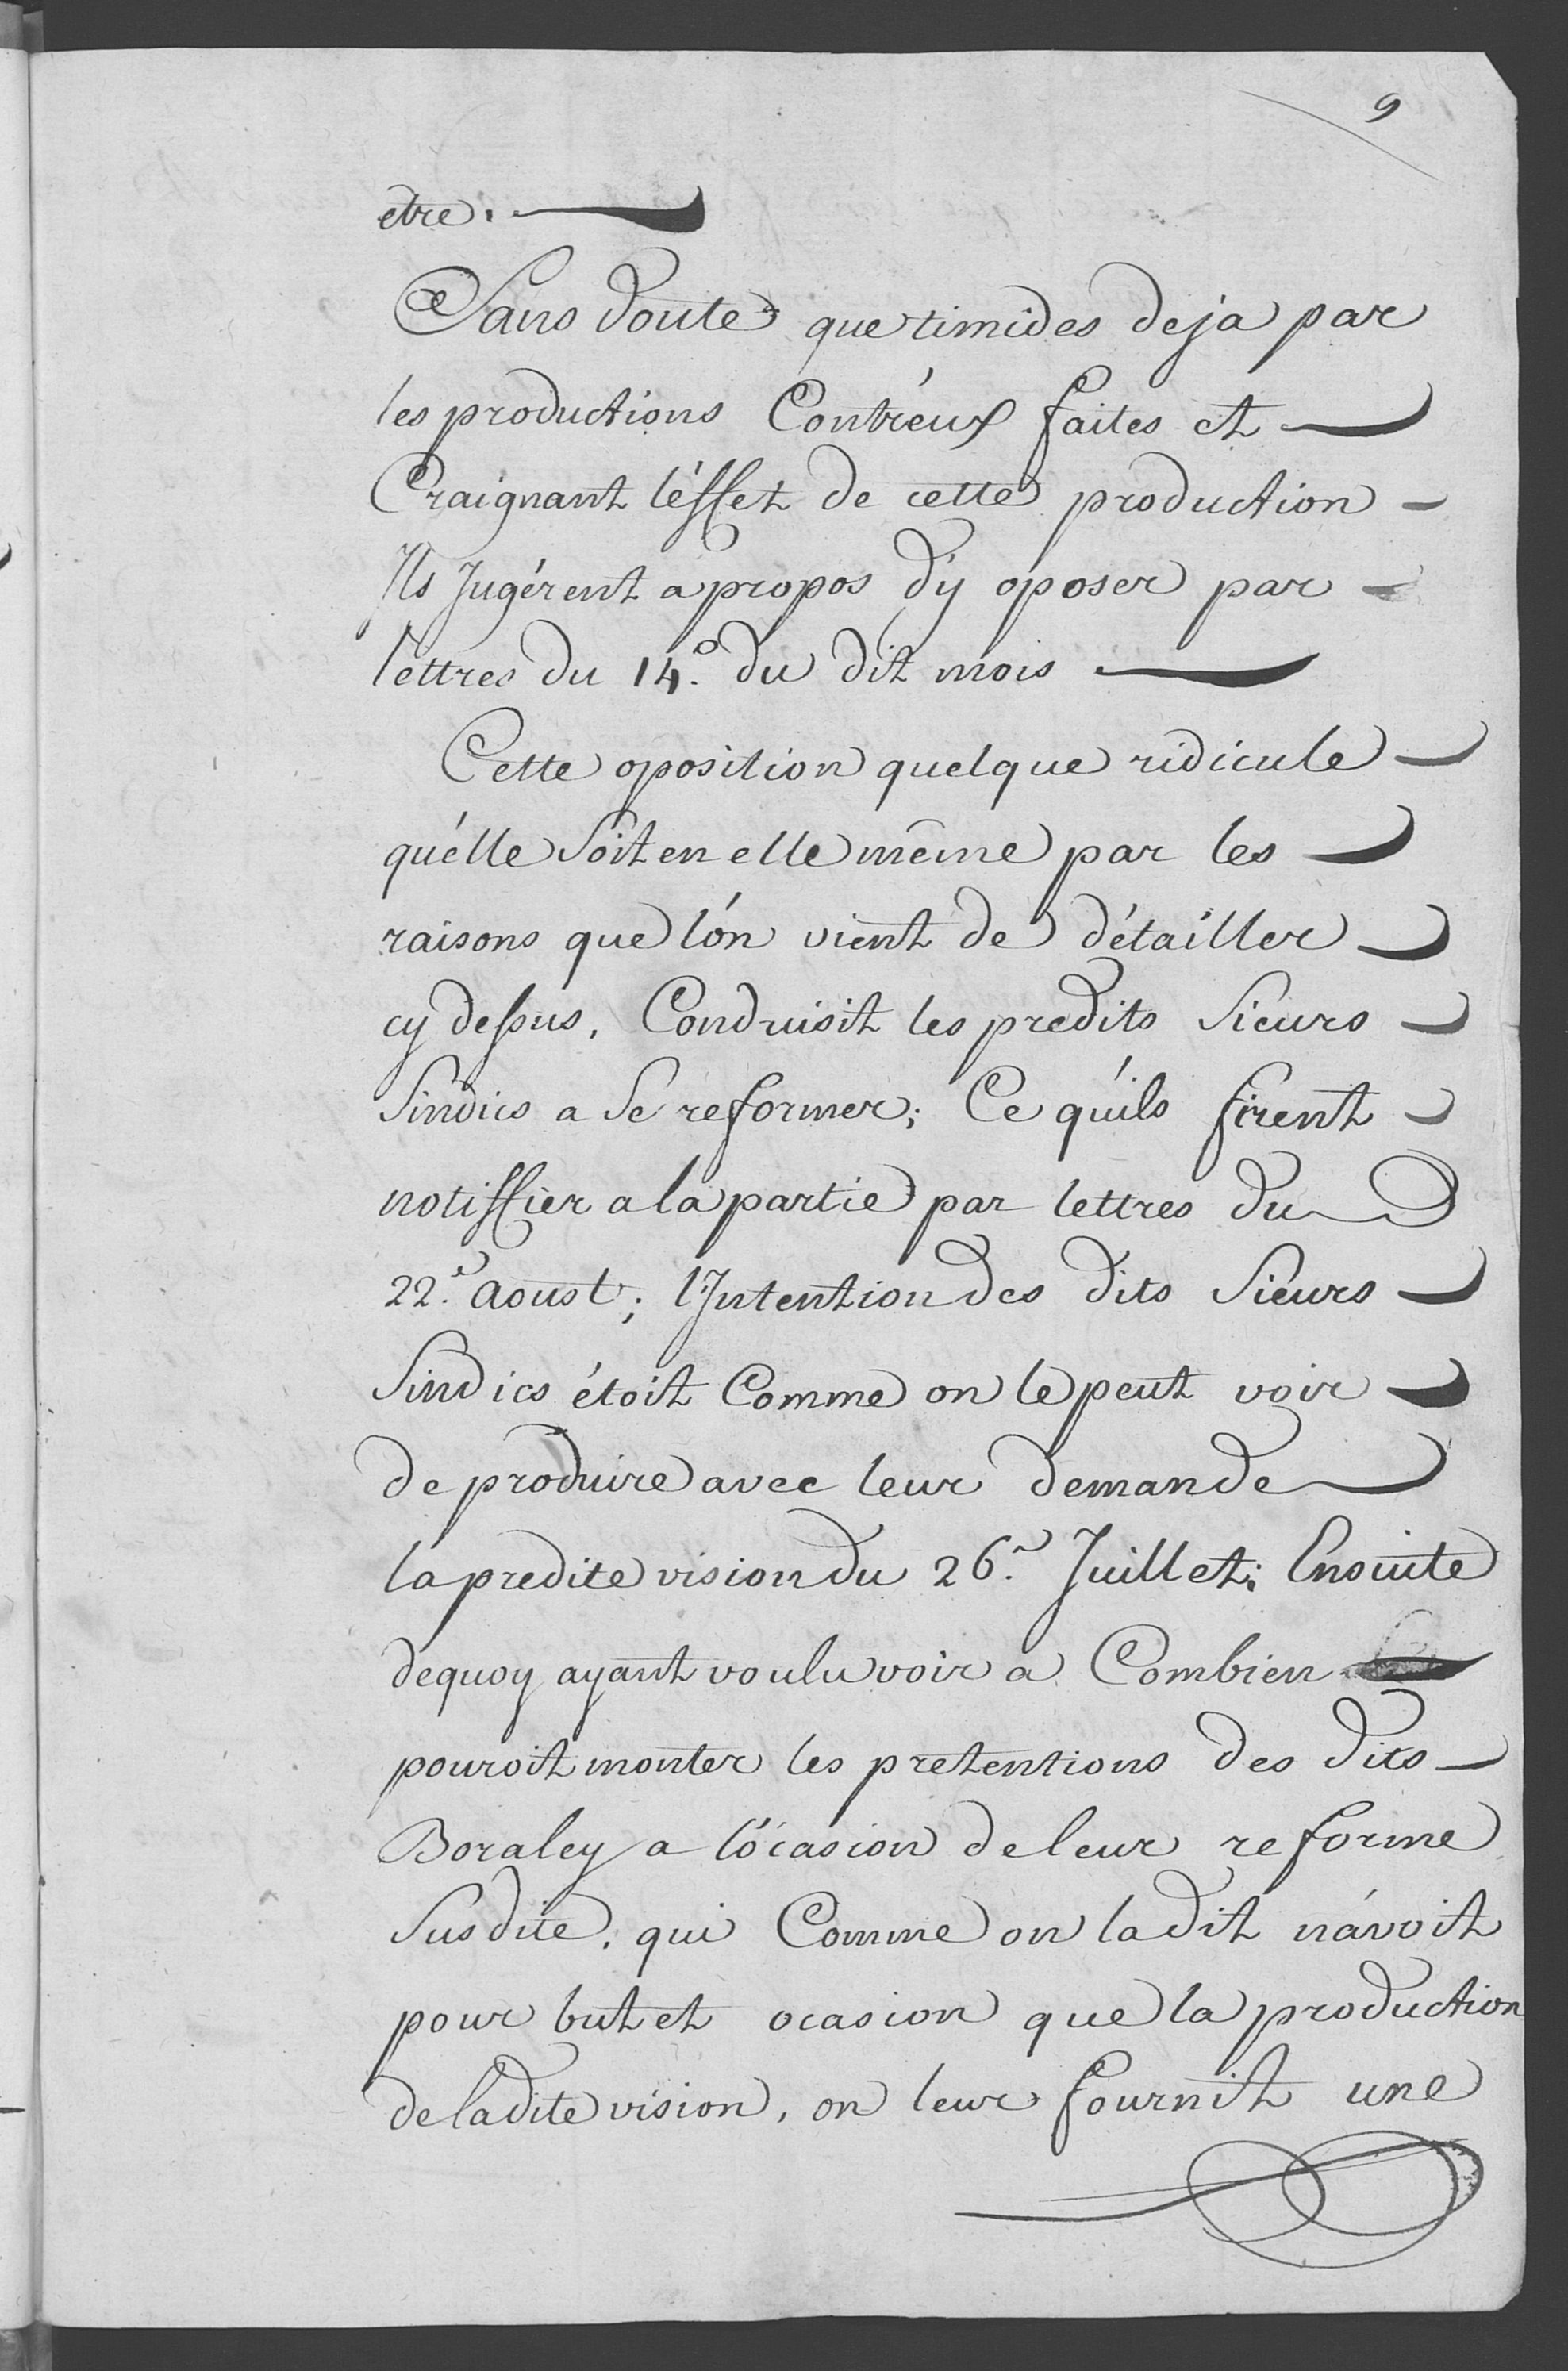 9
etre.
Sans doute que timides deja par
les productions Contréux faites et
Craignant léffet de cette production
Ils Jugérent a propos d'y oposer par
lettres du 14.e du dit mois
Cette oposition quelque ridicule
qu'elle soit en elle même par les
raisons que lón vient de détailler
cy dessus, Conduisit les predits Sieurs
Sindics a Se reformer; Ce qúils firent
notiffier a la partie par lettres du
22.e Aoust; l'Intention des dits Sieurs
Sindics étoit Comme on le peut voir
de produire avec leur demande
la predite vision du 26.e Juillet; Ensuite
dequoy ayant voulu voir a Combien
pouroit monter les pretentions des dits
Boraley a lócasion de leur reforme
Susdite, qui Comme on la dit návoit
pour but et ocasion que la production
de ladite vision, on leur fournit une